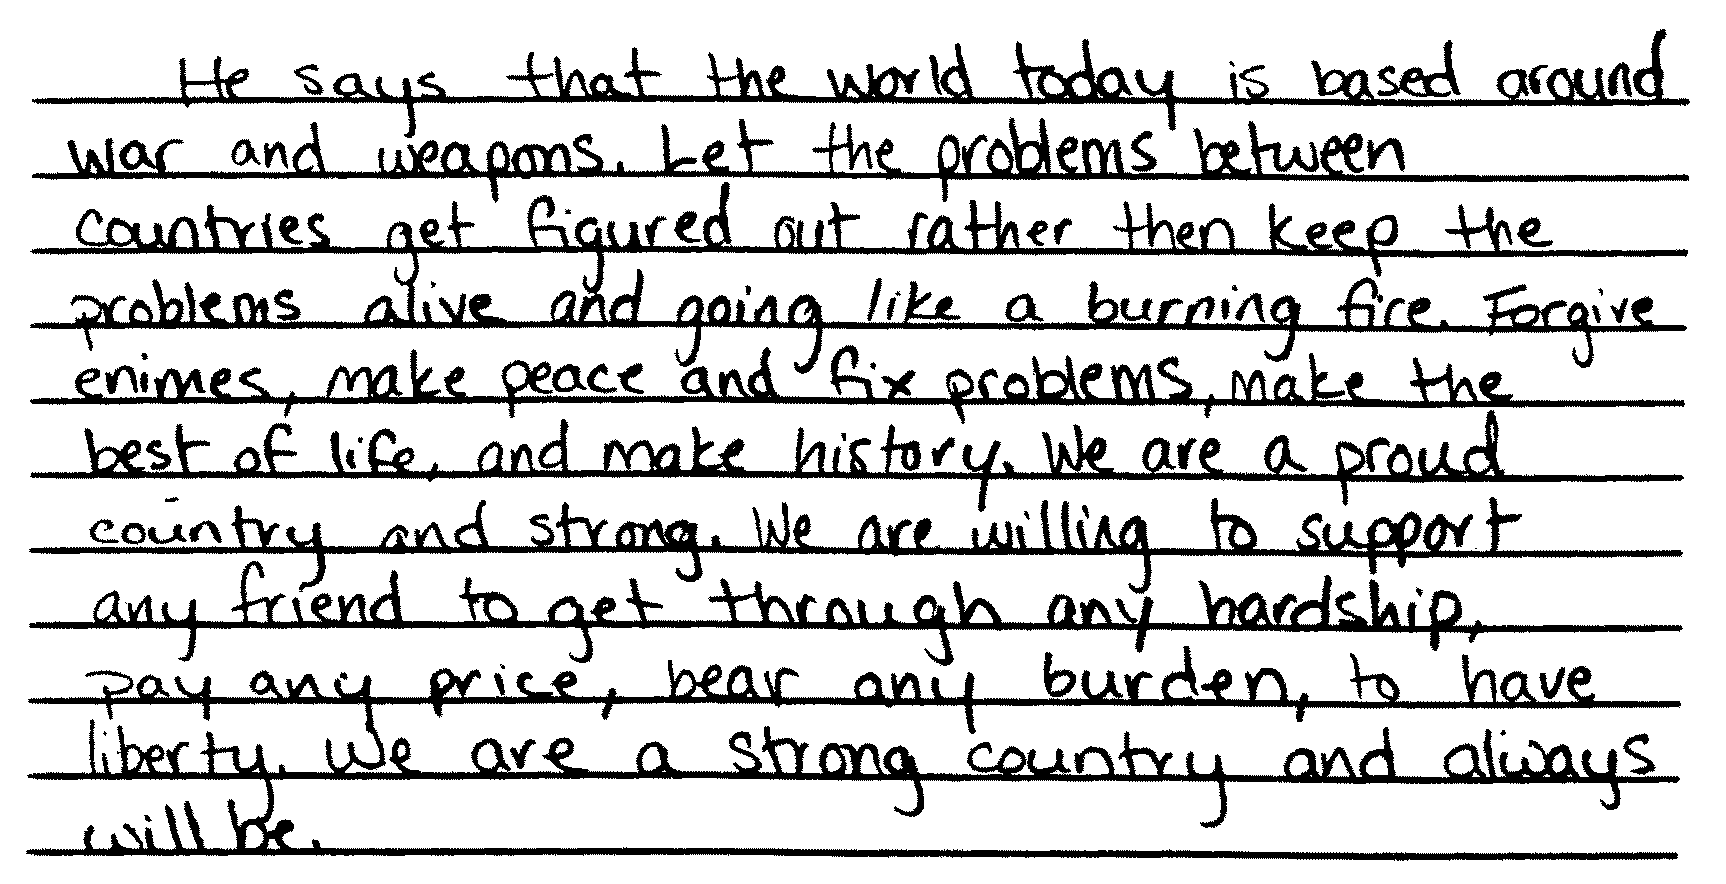 He says that the world today is based around
war and weapons. Let the problems between
countries get figured out rather then keep the
problems alive and going like a burning fire. Forgive
enimes, make peace and fix problems, make the
best of life, and make history. We are a proud
country and strong. We are willing to support
any friend to get through any hardship,
pay any price, bear any burden, to have
liberty. We are a strong country and always
will be.